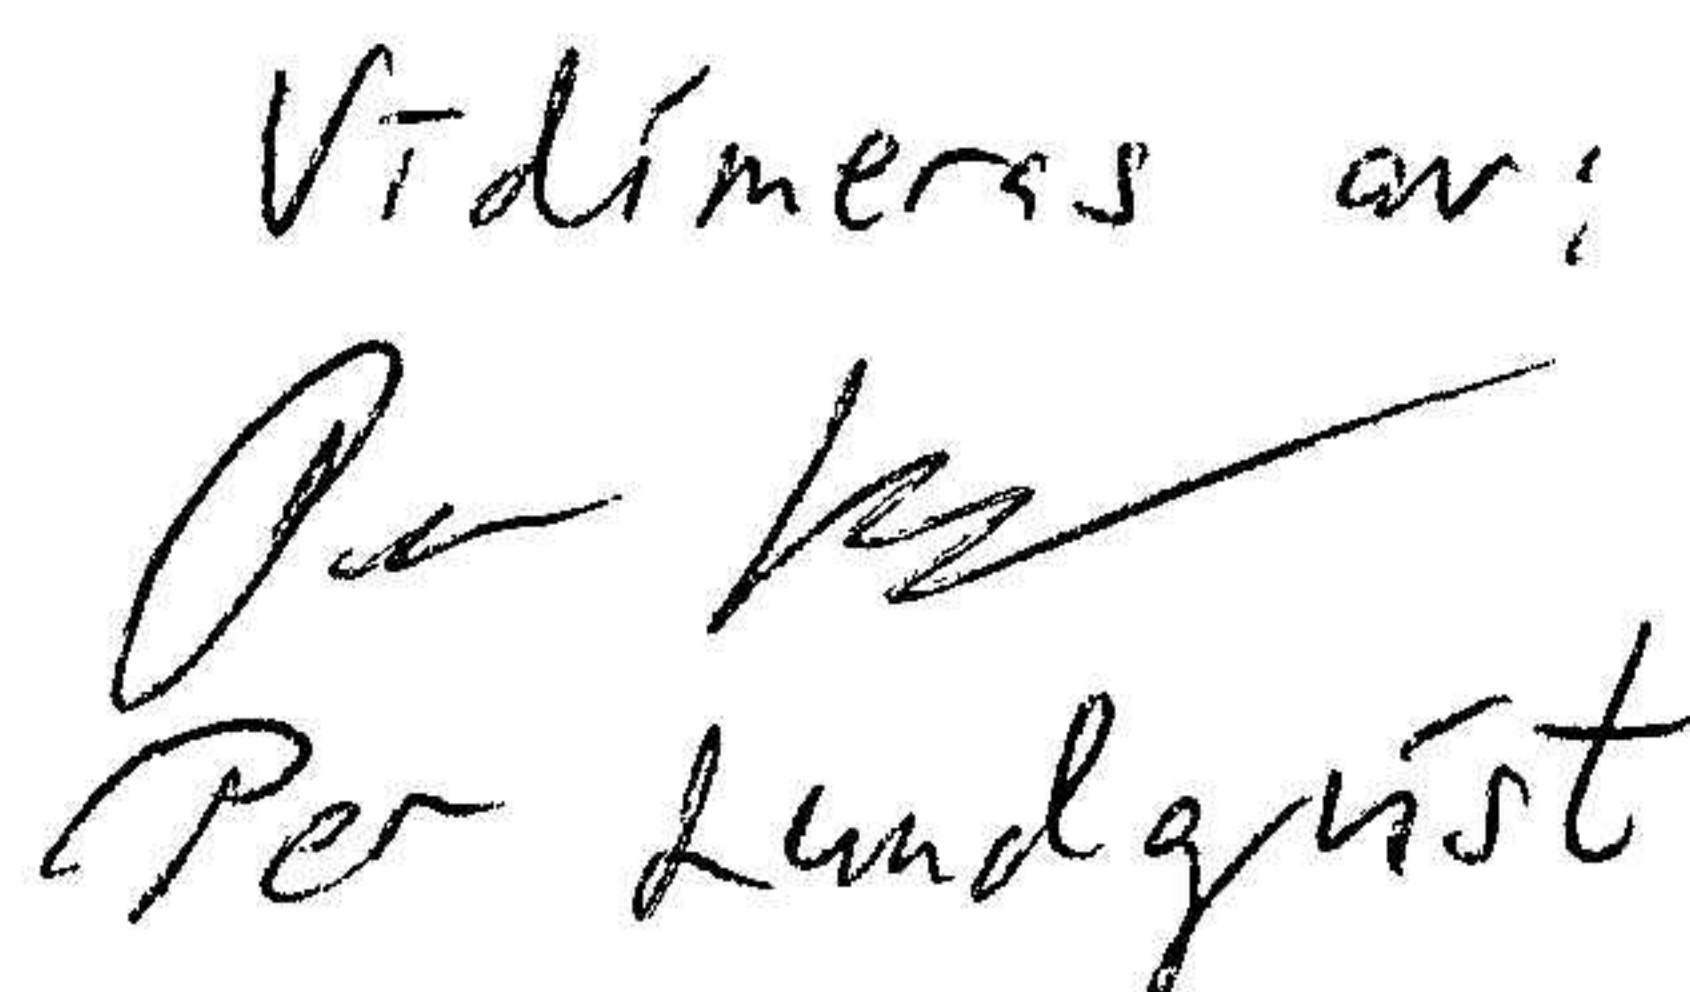 Vidimeras av:
Per Lundqvist